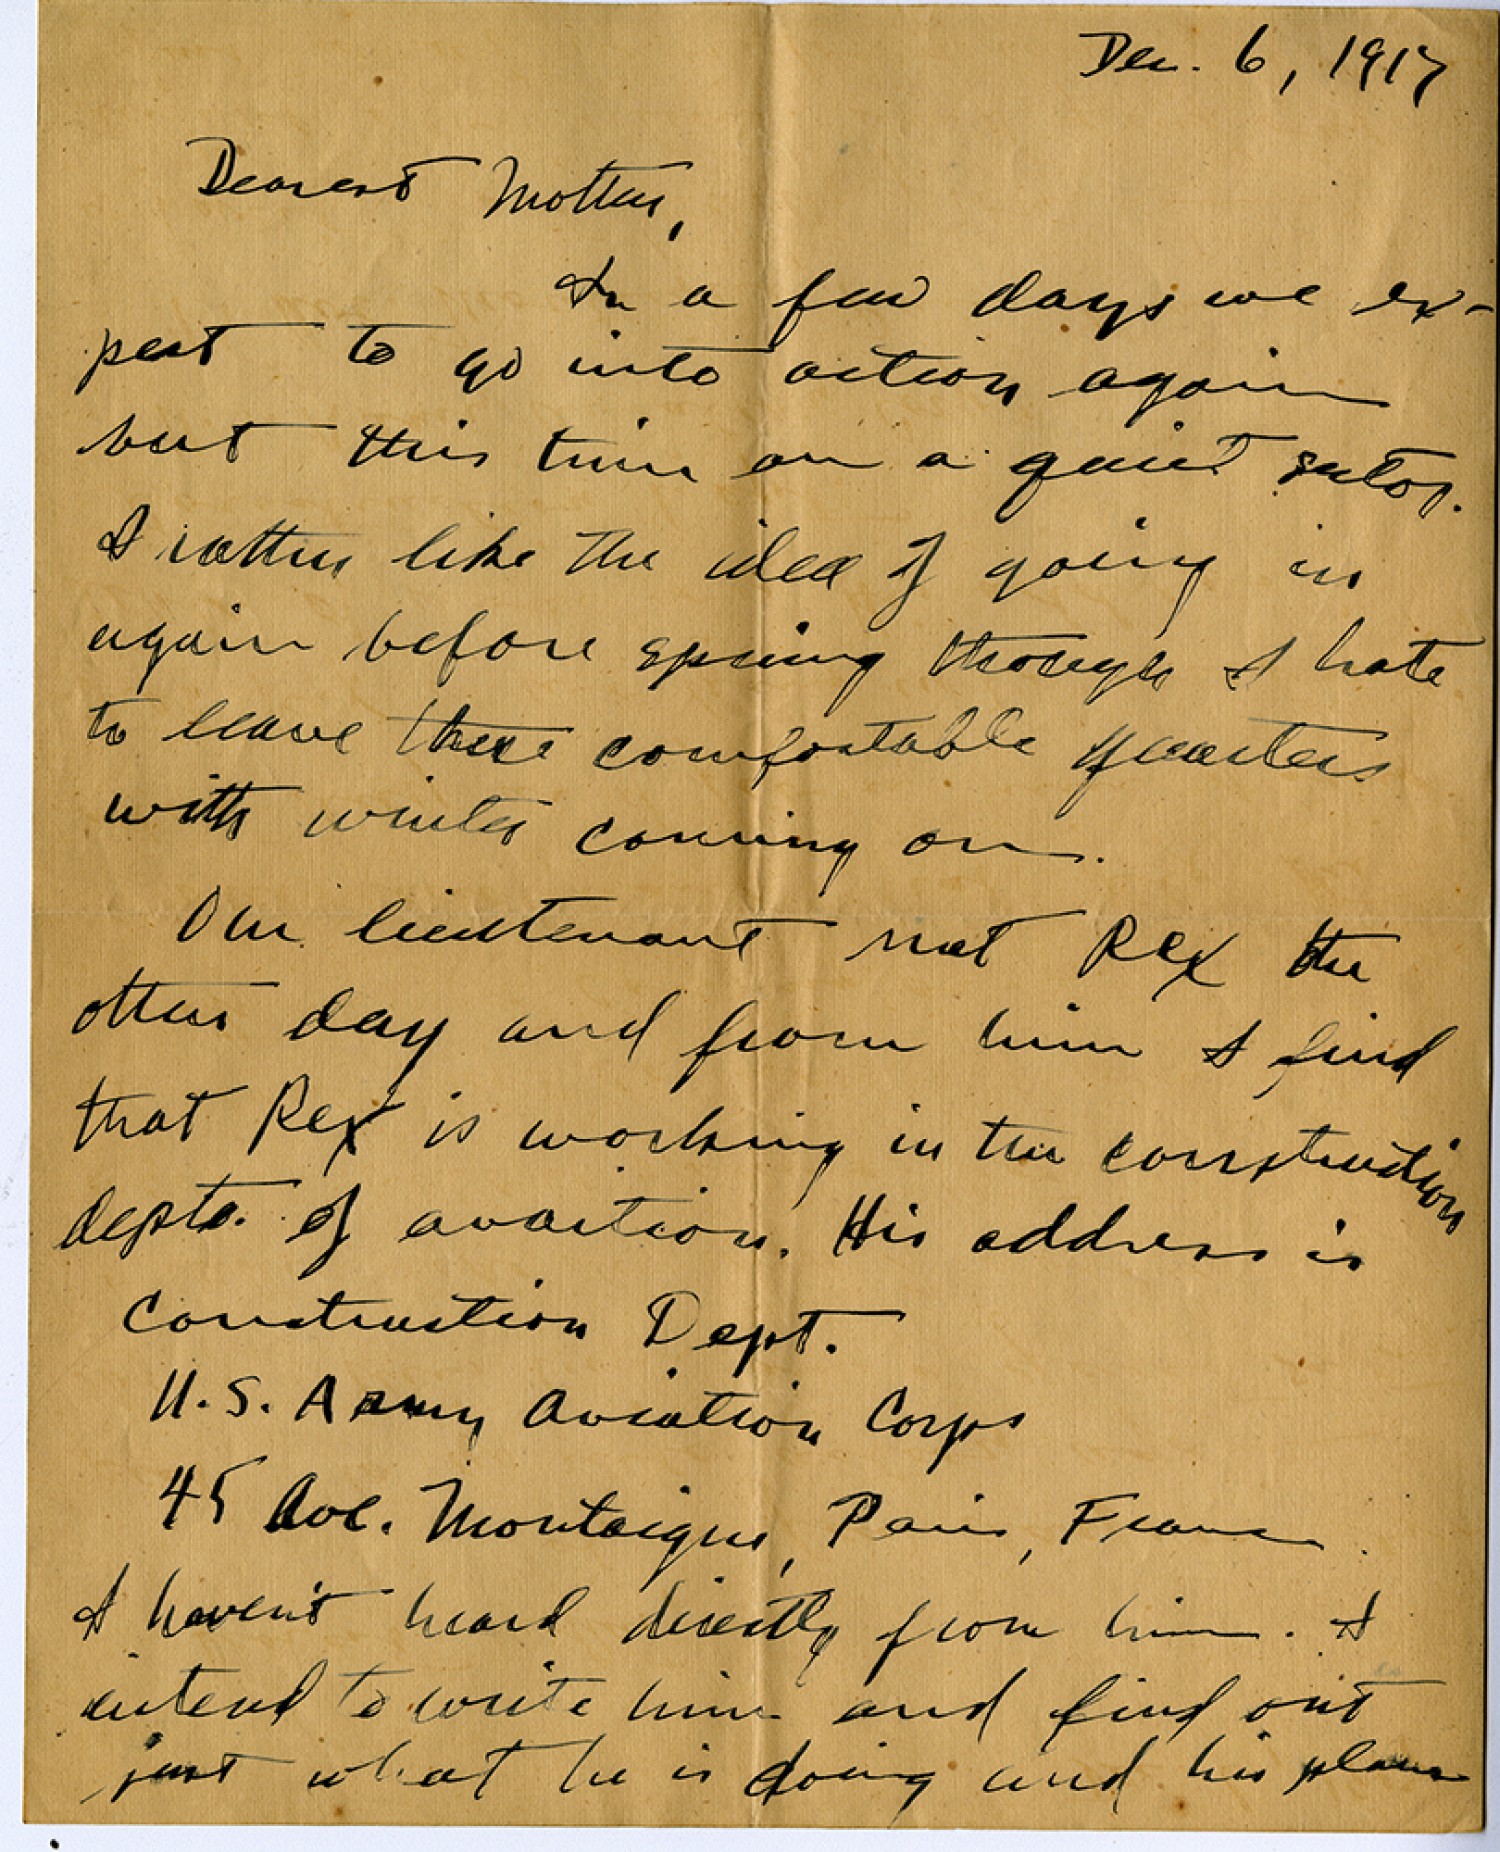 Dec. 6, 1917
Dearest Mother,
In a few days we ex-
pect to go into action again
but this time on a quiet sector.
I rather like the idea of going in
again before spring though I hate
to leave these comfortable quarters
with winter coming on.
Our lieutenant met Rex the
other day and from him I find
that Rex is working in the construction
depts. of aviation. His address is
Construction Dept.
U.S. Army Aviation Corps
45 Ave. Montaigne, Paris, France
I haven't heard directly from him. I
intend to write him and find out
just what he is doing and his plans